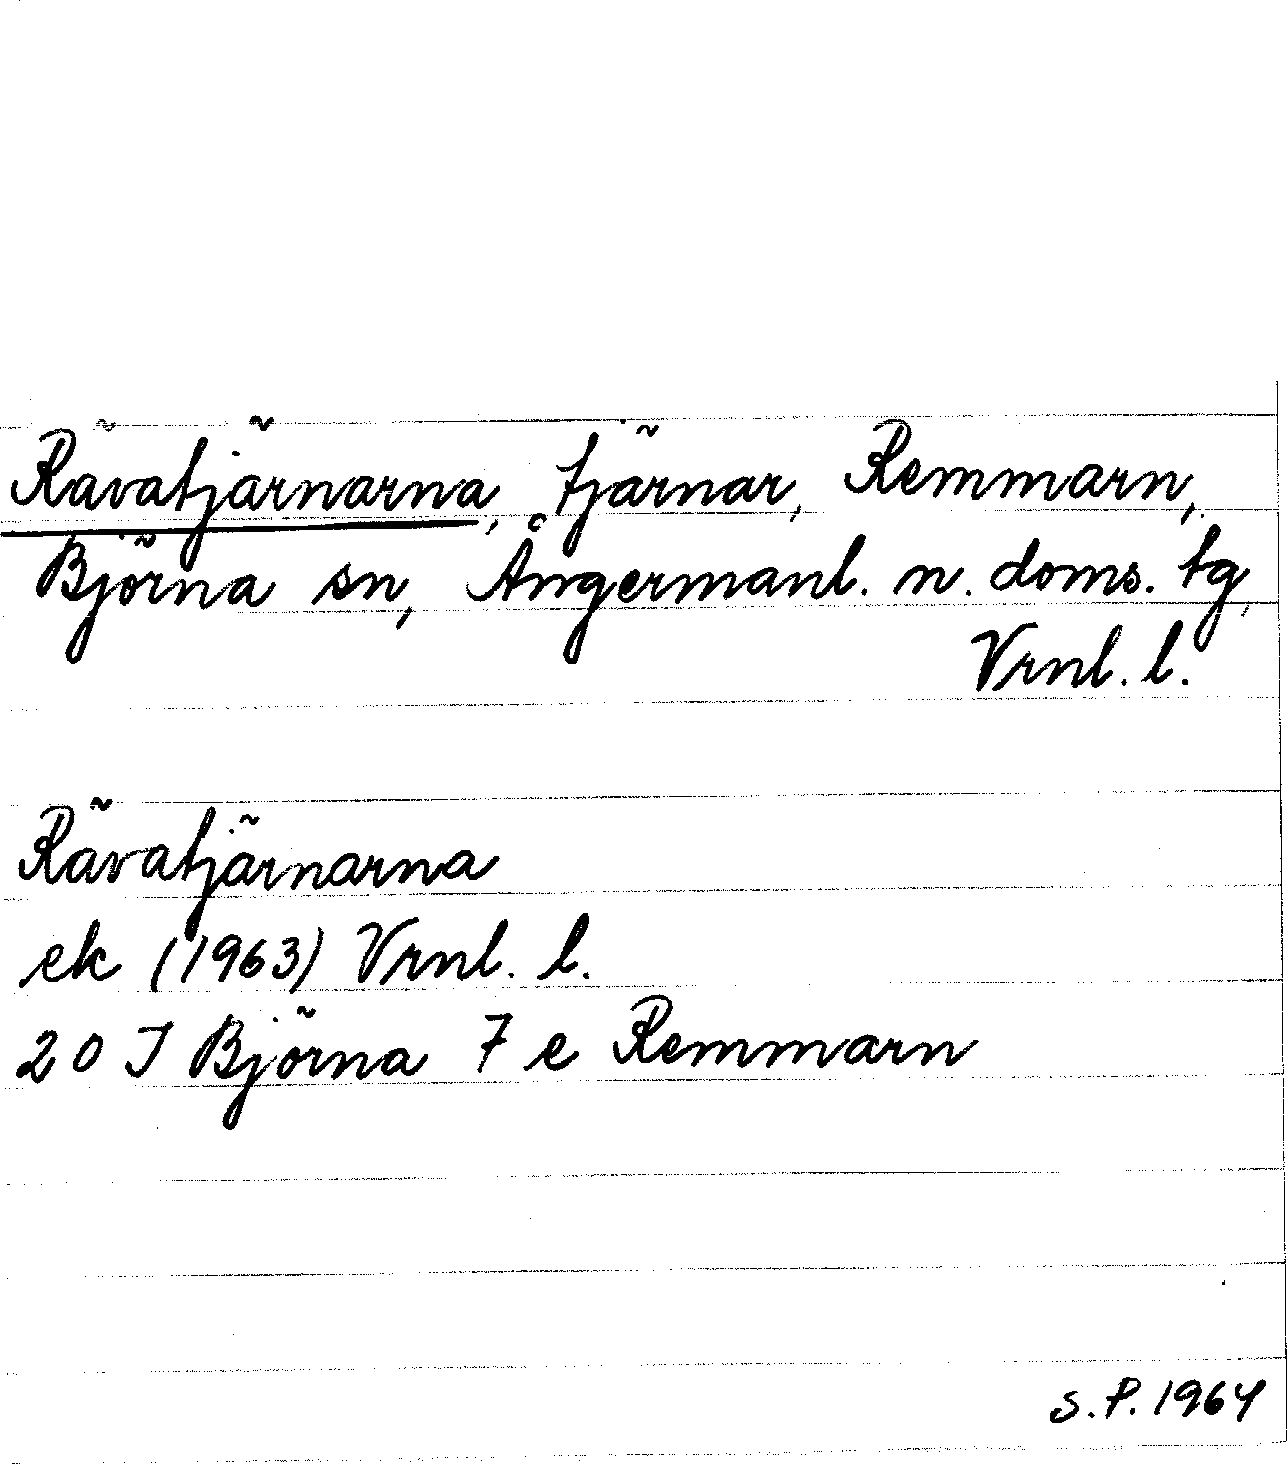 Rävatjärnarna, tjärnar, Remmarn,
Björna sn, Ångermanl. n. doms. tg,
Vrnl. l.
Rävatjärnarna
ek (1963) Vrnl. l.
20 J Björna 7 e Remmarn
S.P. 1964